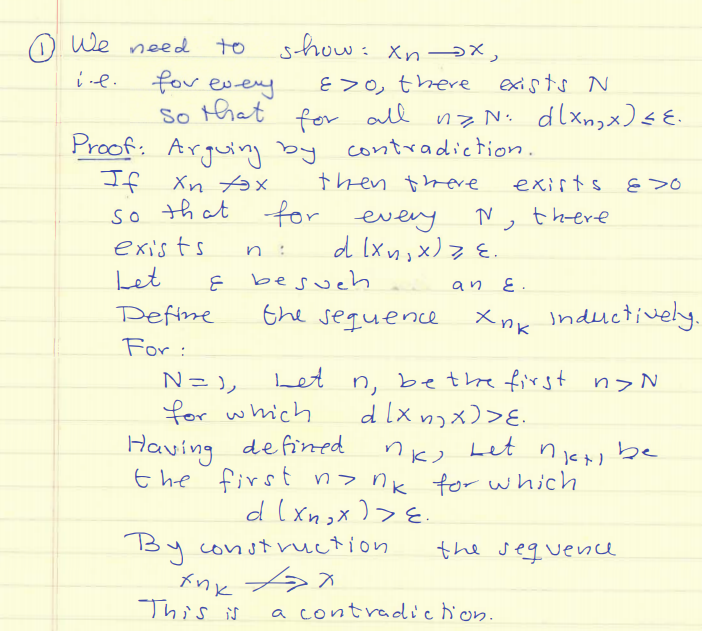 ① We need to show: xn → x,
i.e. for every ε > 0, there exists N
so that for all n ≥ N: d(xn, x) ≤ ε.
Proof: Arguing by contradiction.
If xn ↛ x then there exists ε > 0
so that for every N, there
exists n: d(xn, x) ≥ ε.
Let ε be such an ε.
Define the sequence xnk inductively.
For:
N = 1, Let n1 be the first n > N
for which d(xn, x) > ε.
Having defined nk, Let nk+1 be
the first n > nk for which
d(xn, x) > ε.
By construction the sequence
xnk ↛ x
This is a contradiction.